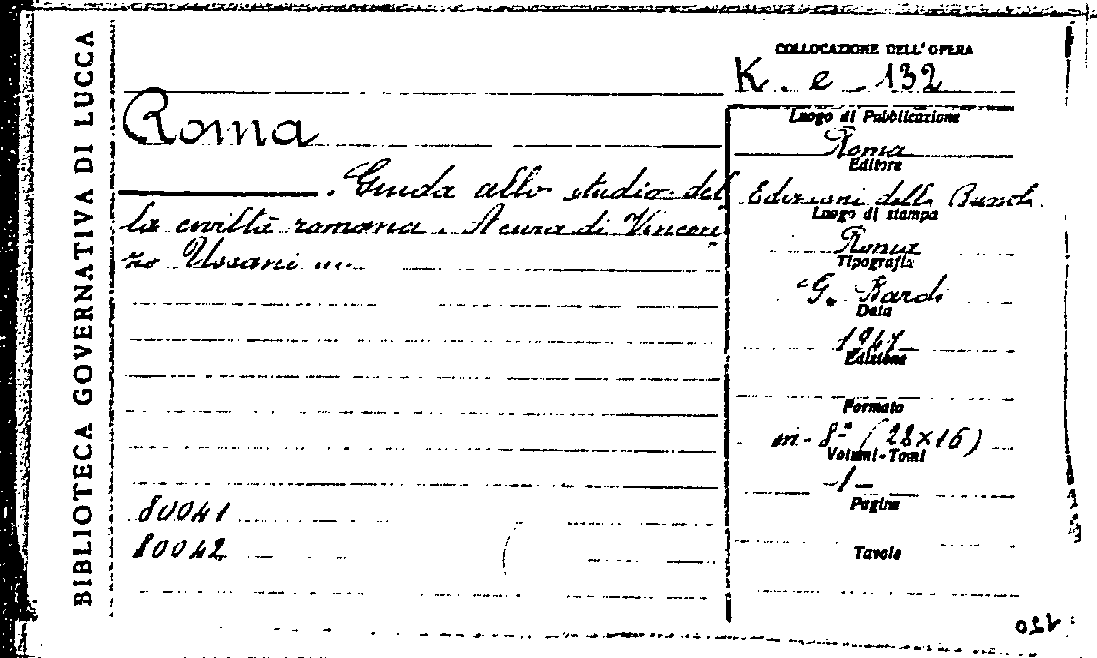 BIBLIOTECA GOVERNATIVA DI LUCCA
COLLOCAZIONE DELL'OPERA
K. e. 132
Roma
. Guida allo studio del
la civiltà romana. A cura di Vincen
zo Ussani ...
80041
80042
Luogo di Pubblicazione
Roma
Editore
Edizioni della Bussola
Luogo di stampa
Roma
Tipografia
G. Bardi
Data
Edizione
Formato
in-8º (28x16)
Volumi-Tomi
-1-
Pagine
Tavole